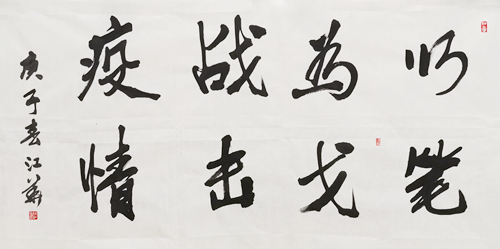 以笔
为戈
战击
疫情
庚子春江华